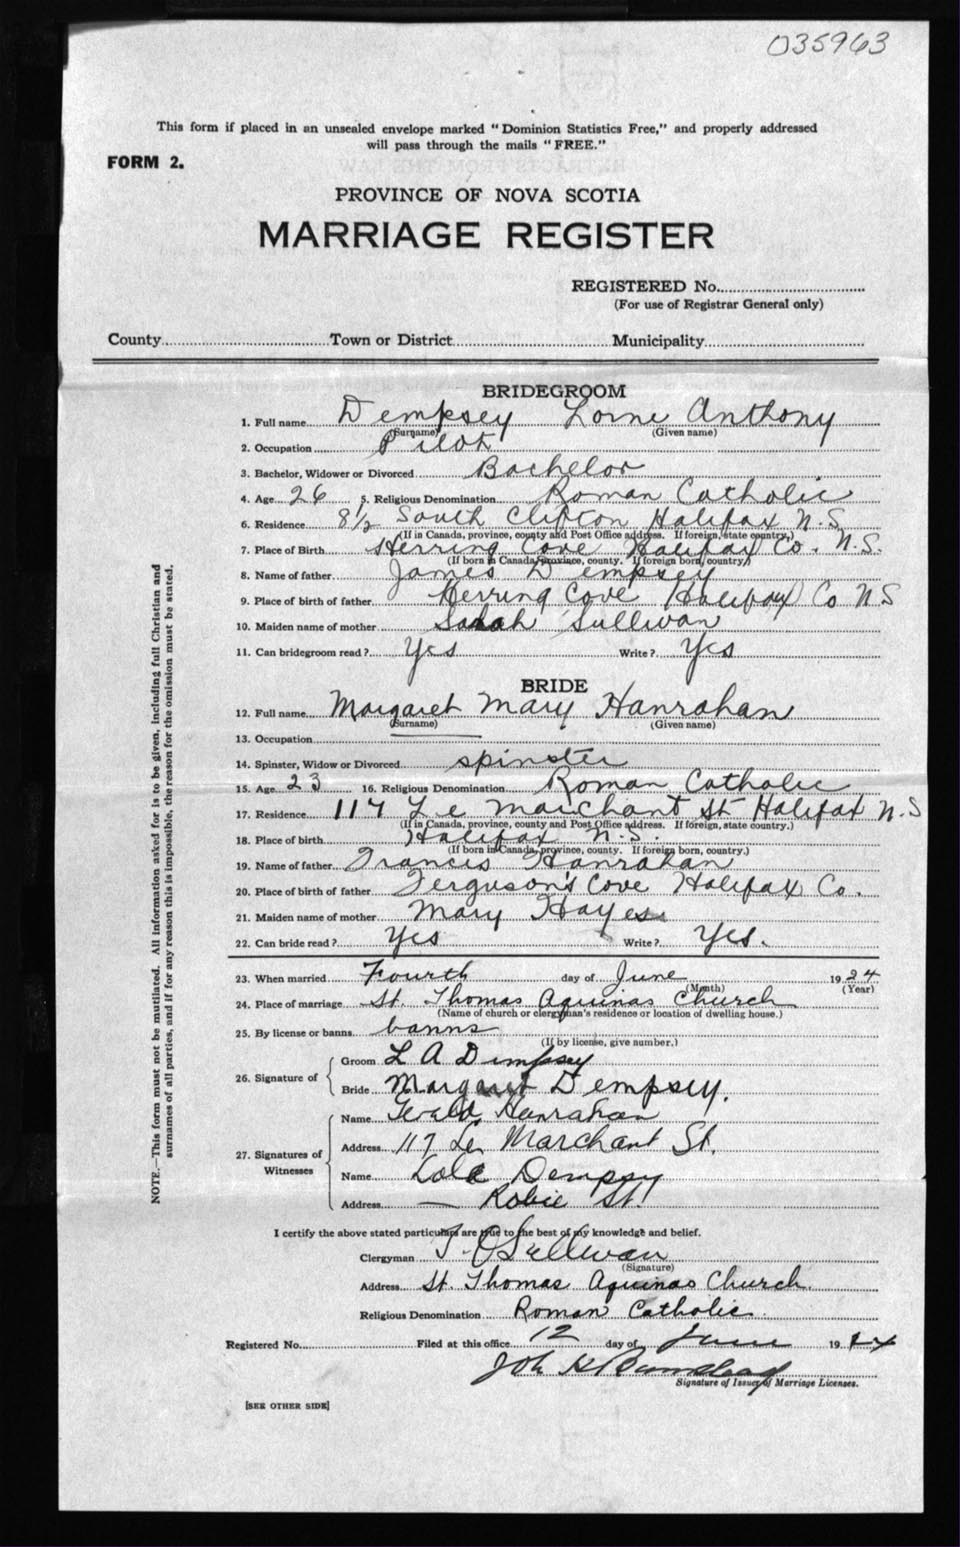 035963
This form if placed in an unsealed envelope marked "Dominion Statistics Free," and properly addressed
will pass through the mails "FREE."
FORM 2.
PROVINCE OF NOVA SCOTIA
MARRIAGE REGISTER
REGISTERED No.
(For use of Registrar General only)
County Town or District Municipality
BRIDEGROOM
1. Full name Dempsey Lorne Anthony
(Surname) (Given name)
2. Occupation Pilot
3. Bachelor, Widower or Divorced Bachelor
4. Age 26 5. Religious Denomination Roman Catholic
6. Residence 8½ South Clifton Halifax N.S.
(If in Canada, province, county and Post Office address. If foreign, state country.)
7. Place of Birth Herring Cove Halifax Co. N.S.
(If born in Canada, province, county. If foreign born, country.)
8. Name of father James Dempsey
9. Place of birth of father Herring Cove Halifax Co N S
10. Maiden name of mother Sarah Sullivan
11. Can bridegroom read? Yes Write? Yes
BRIDE
12. Full name Margaret Mary Hanrahan
(Surname) (Given name)
13. Occupation
14. Spinster, Widow or Divorced spinster
15. Age 23 16. Religious Denomination Roman Catholic
17. Residence 117 Le Marchant St Halifax N.S
(If in Canada, province, county and Post Office address. If foreign, state country.)
18. Place of birth Halifax N.S.
(If born in Canada, province, county. If foreign born, country.)
19. Name of father Francis Hanrahan
20. Place of birth of father Ferguson's Cove Halifax Co.
21. Maiden name of mother Mary Hayes
22. Can bride read? Yes Write? Yes.
23. When married Fourth day of June 1924
(Month) (Year)
24. Place of marriage St. Thomas Aquinas Church
(Name of church or clergyman's residence or location of dwelling house.)
25. By license or banns banns
(If by license, give number.)
26. Signature of
Groom L A Dempsey
Bride Margaret Dempsey.
27. Signatures of Witnesses
Name Hanrahan
Address 117 Le Marchant St.
Name Dempsey
Address — Robie St.
I certify the above stated particulars are true to the best of my knowledge and belief.
Clergyman T. O'Sullivan
(Signature)
Address St. Thomas Aquinas Church
Religious Denomination Roman Catholic
Registered No. Filed at this office 12 day of June 1924
Signature of Issuer of Marriage Licenses.
[SEE OTHER SIDE]
NOTE.—This form must not be mutilated. All information asked for is to be given, including full Christian and
surnames of all parties, and if for any reason this is impossible, the reason for the omission must be stated.